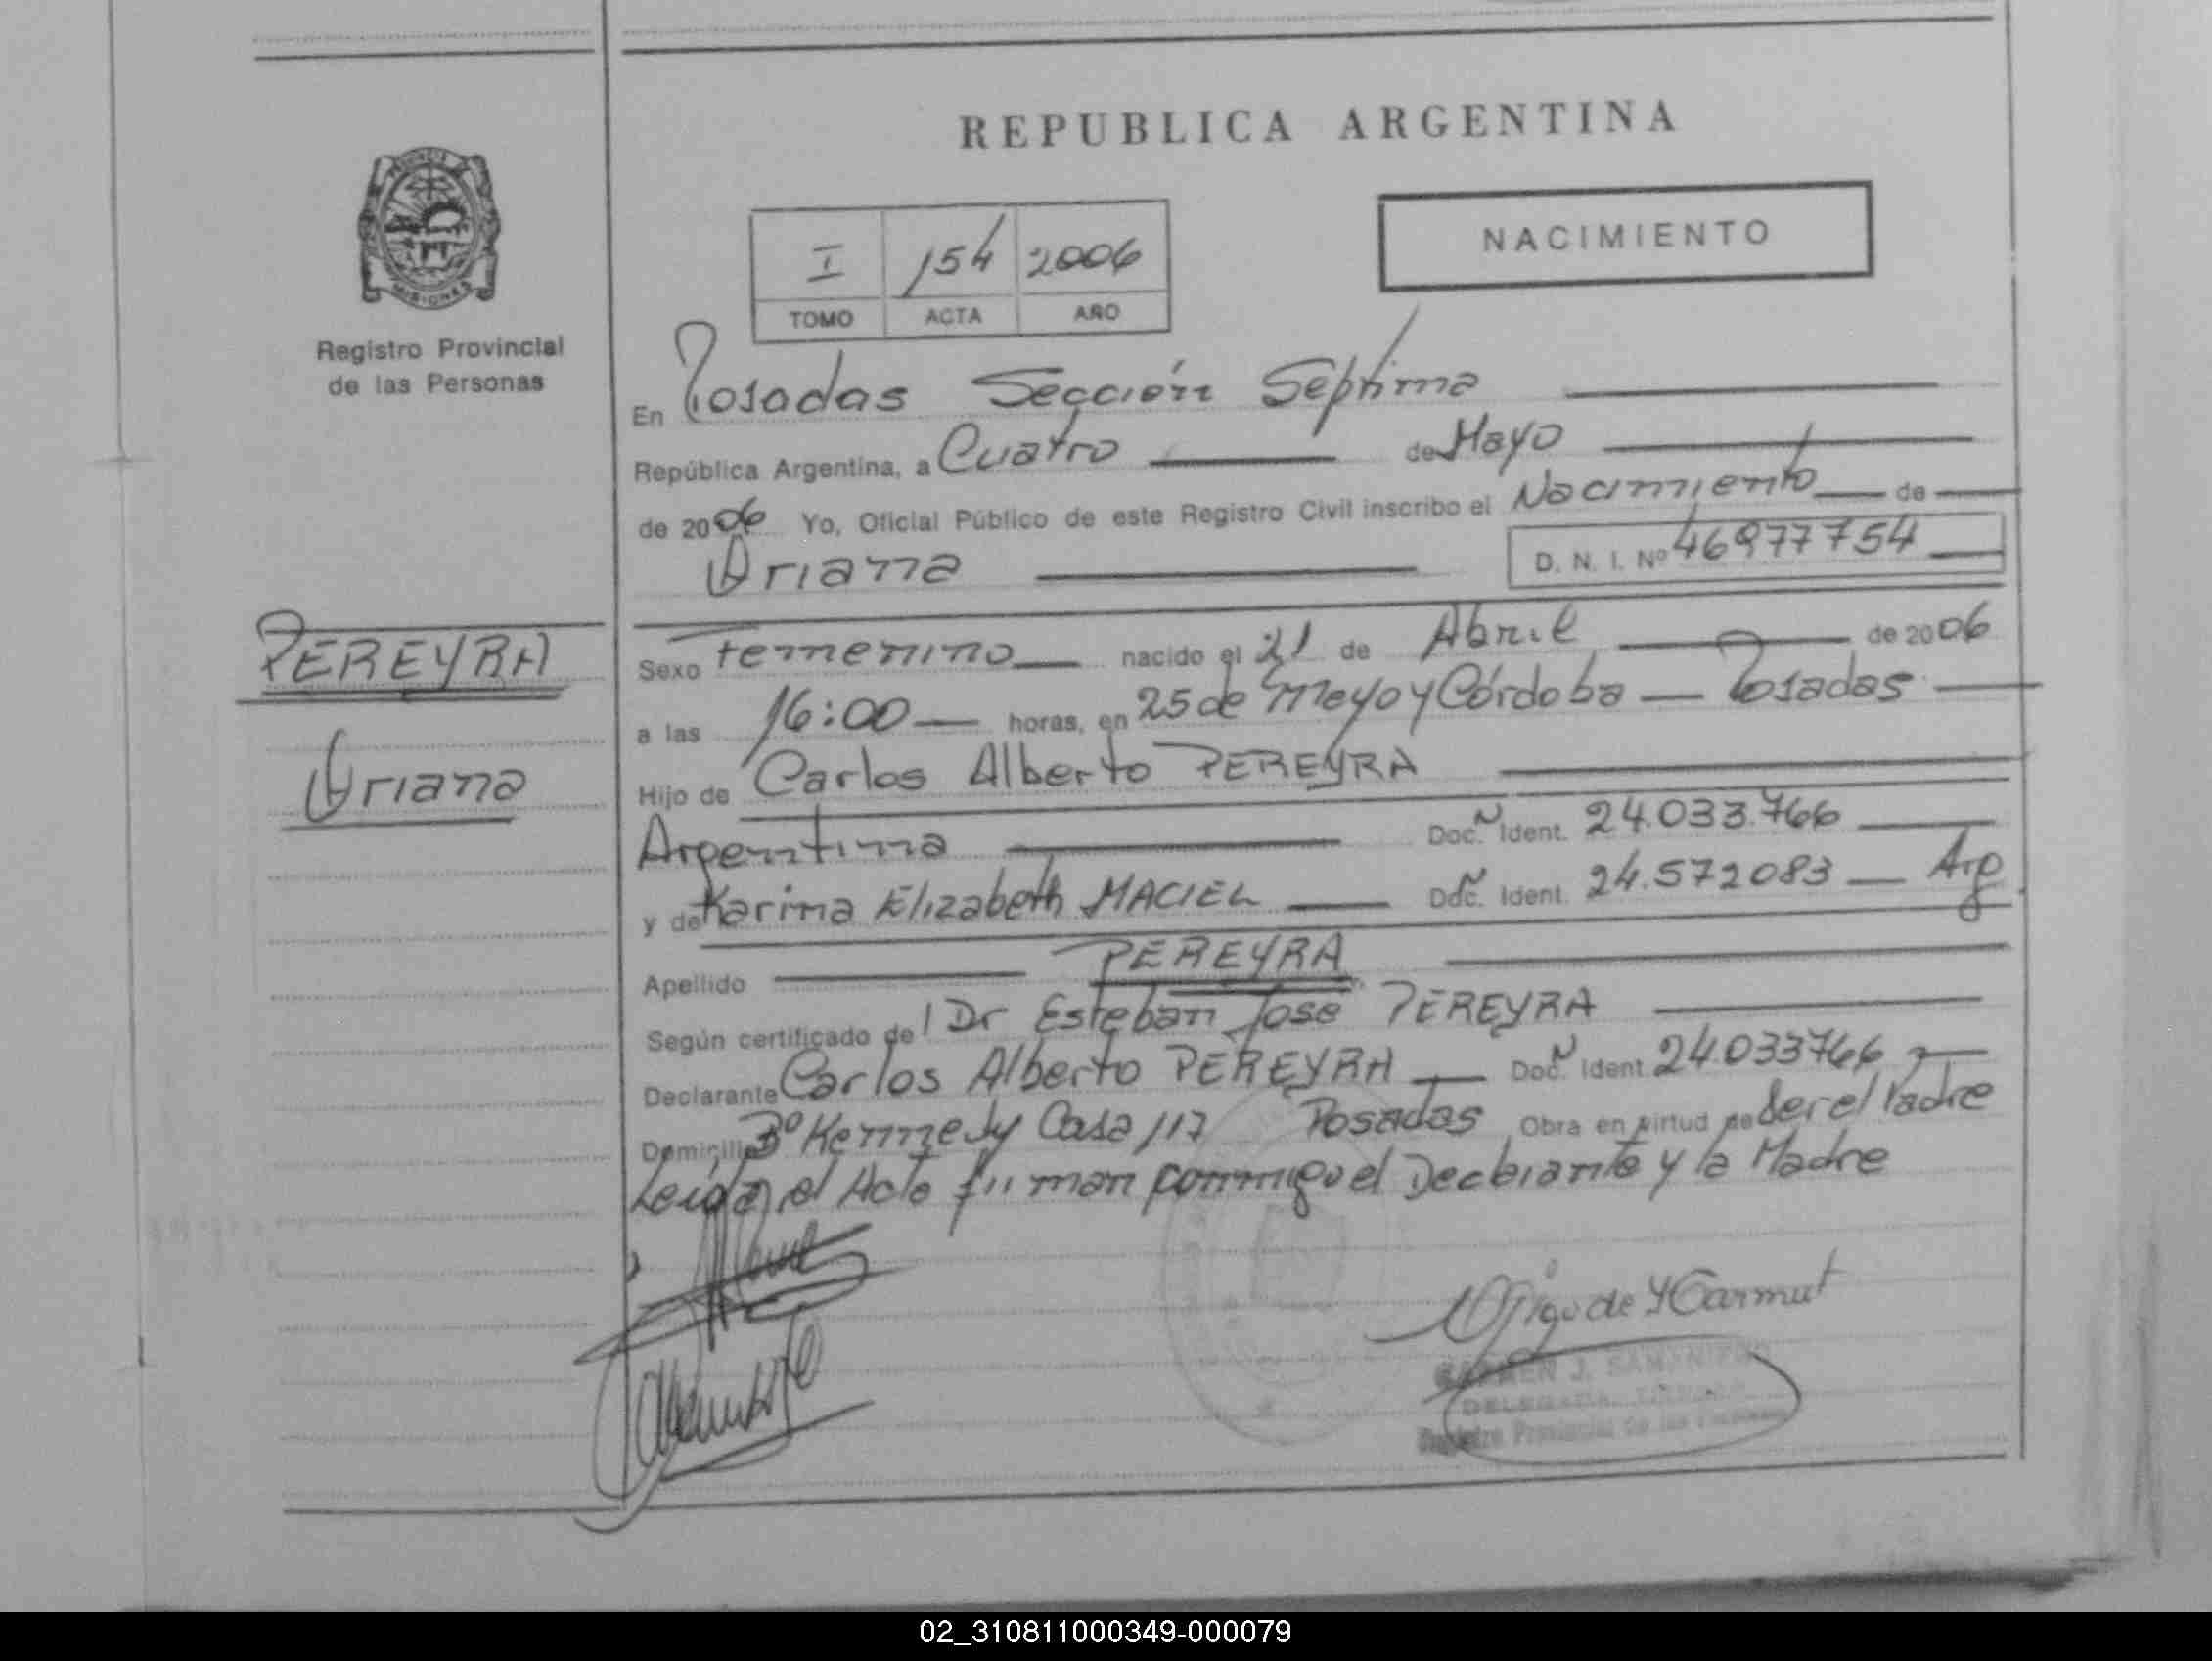 REPUBLICA ARGENTINA
PROVINCIA
MISIONES
Registro Provincial
de las Personas
NACIMIENTO
I 154 2006
TOMO ACTA AÑO
En Posadas Sección Séptima
República Argentina, a Cuatro de Mayo
de 2006 Yo, Oficial Público de este Registro Civil inscribo el Nacimiento de
Ariana D. N. I. Nº 46977754
PEREYRA
Ariana
Sexo Femenino nacido el 21 de Abril de 2006
a las 16:00 horas, en 25 de Mayo y Córdoba — Posadas
Hijo de Carlos Alberto PEREYRA
Argentina Doc. Ident. 24.033.766
y de Karina Elizabeth MACIEL Doc. Ident. 24.572083 — Arg
Apellido PEREYRA
Según certificado de l Dr Esteban José PEREYRA
Declarante Carlos Alberto PEREYRA Doc. Ident. 24.033766
Domicilio Bº Kennedy Casa 117 Posadas Obra en virtud de Ser el Padre
Leida el Acta firman conmigo el Declarante y la Madre
CARMEN J. SAMANIEGO
DELEGADA TITULAR
Registro Provincial de las Personas
02_310811000349-000079